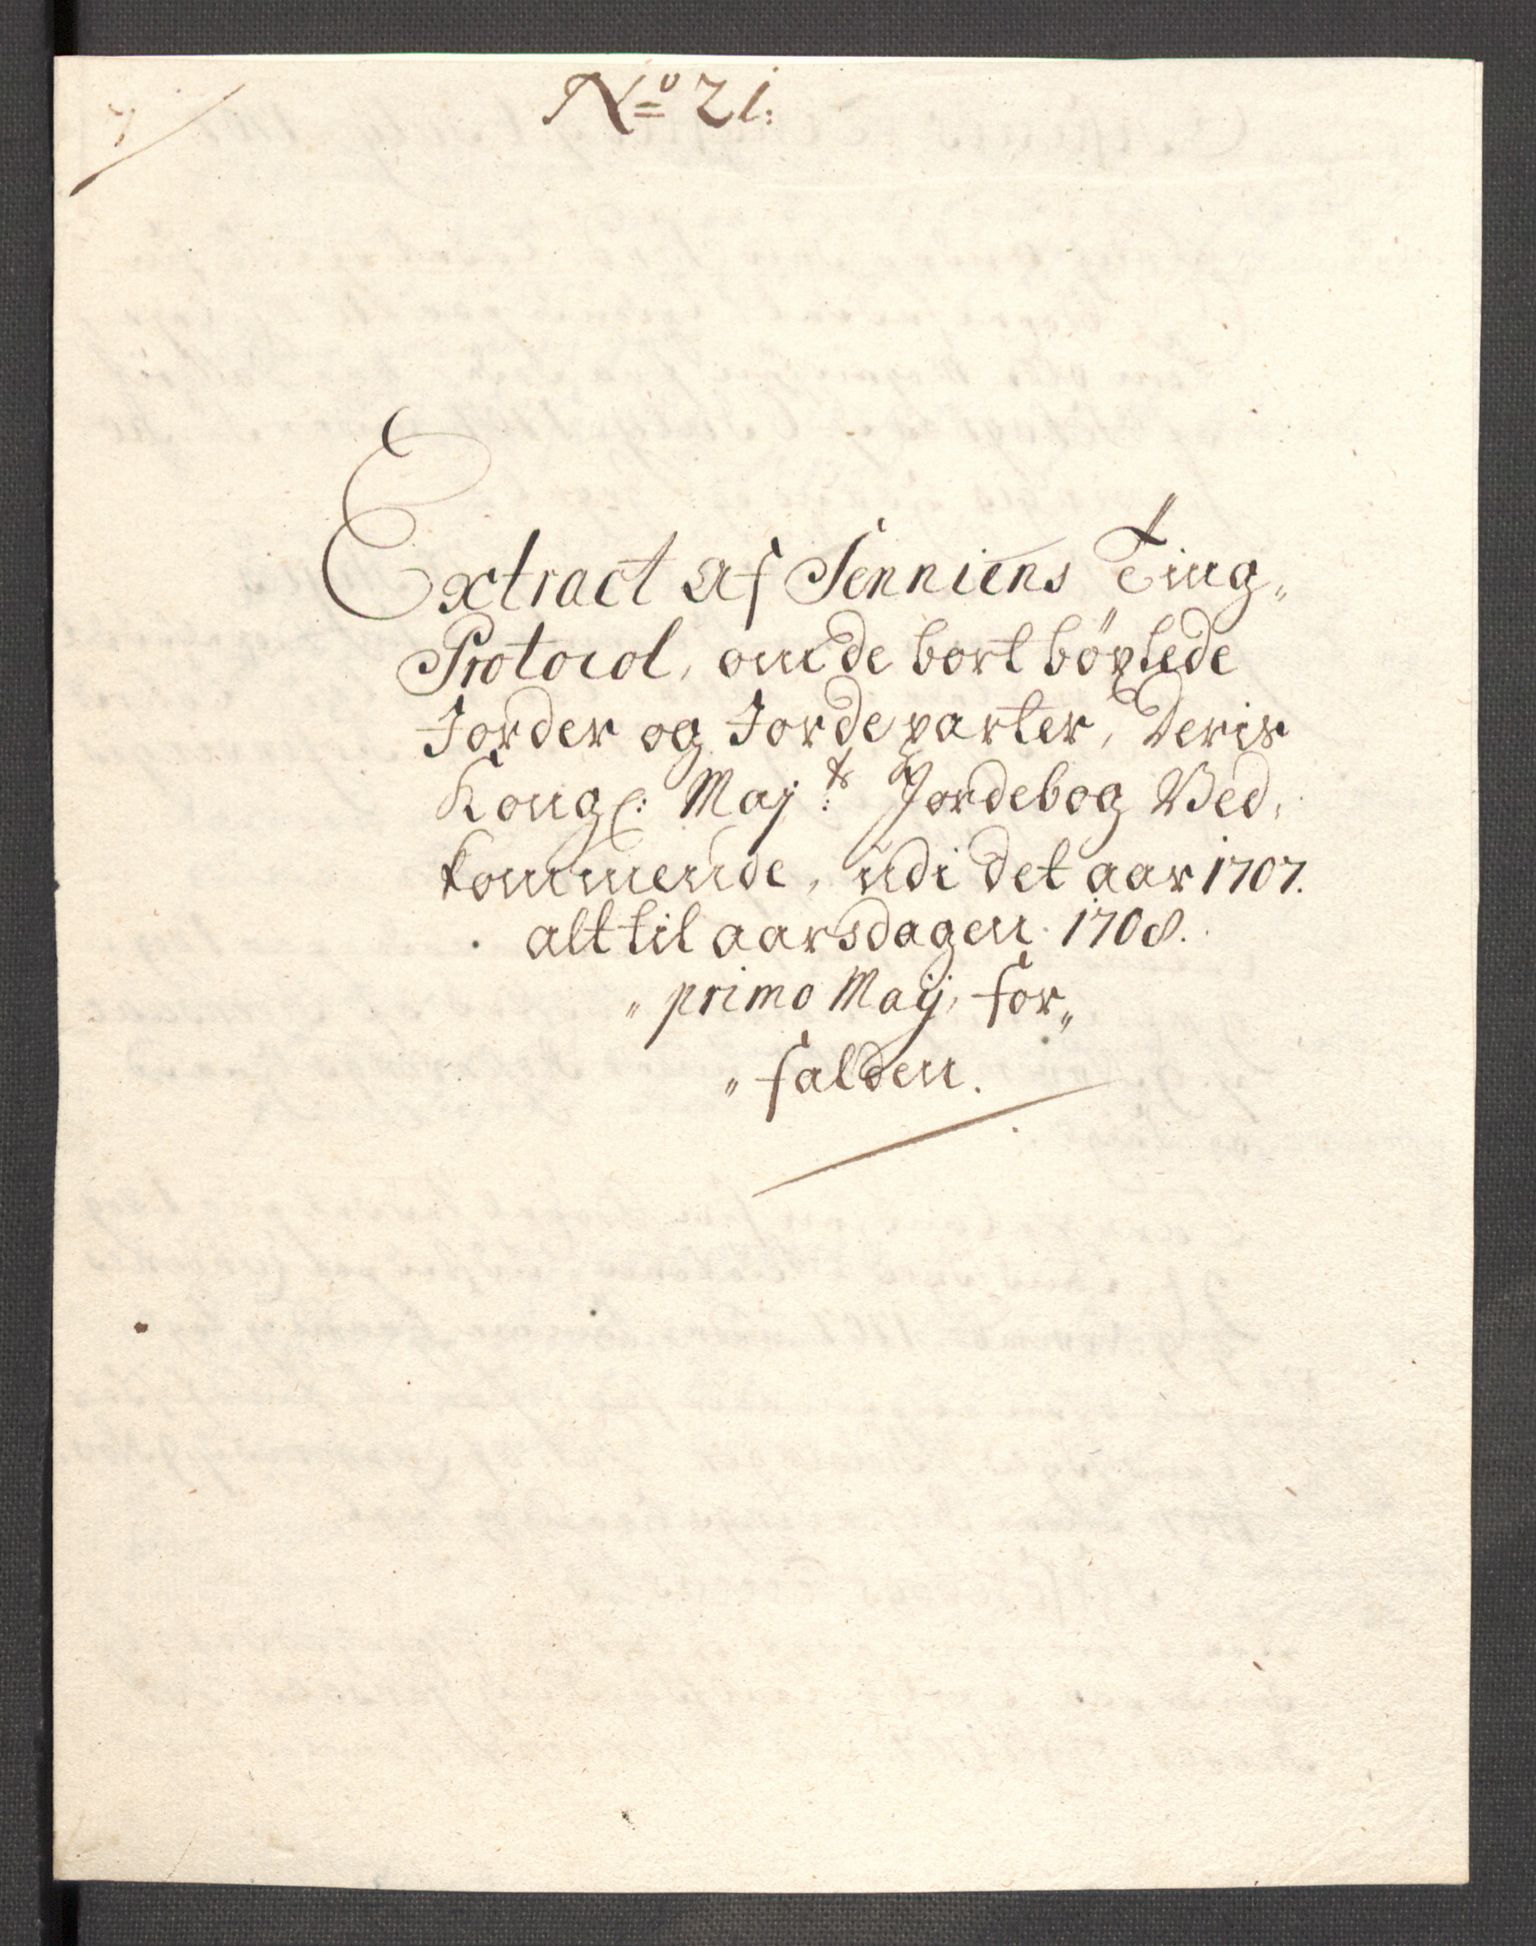 No 21:
Extract af Senniens Ting„
Protocol, om de bort böxlede
Jorder og Jordeparter, Deris
Kongl: Majts: Jordebog Ved„
kommende, udi det aar 1707.
alt til aarsdagen 1708.
„ primo Maij, for„
„ falden.